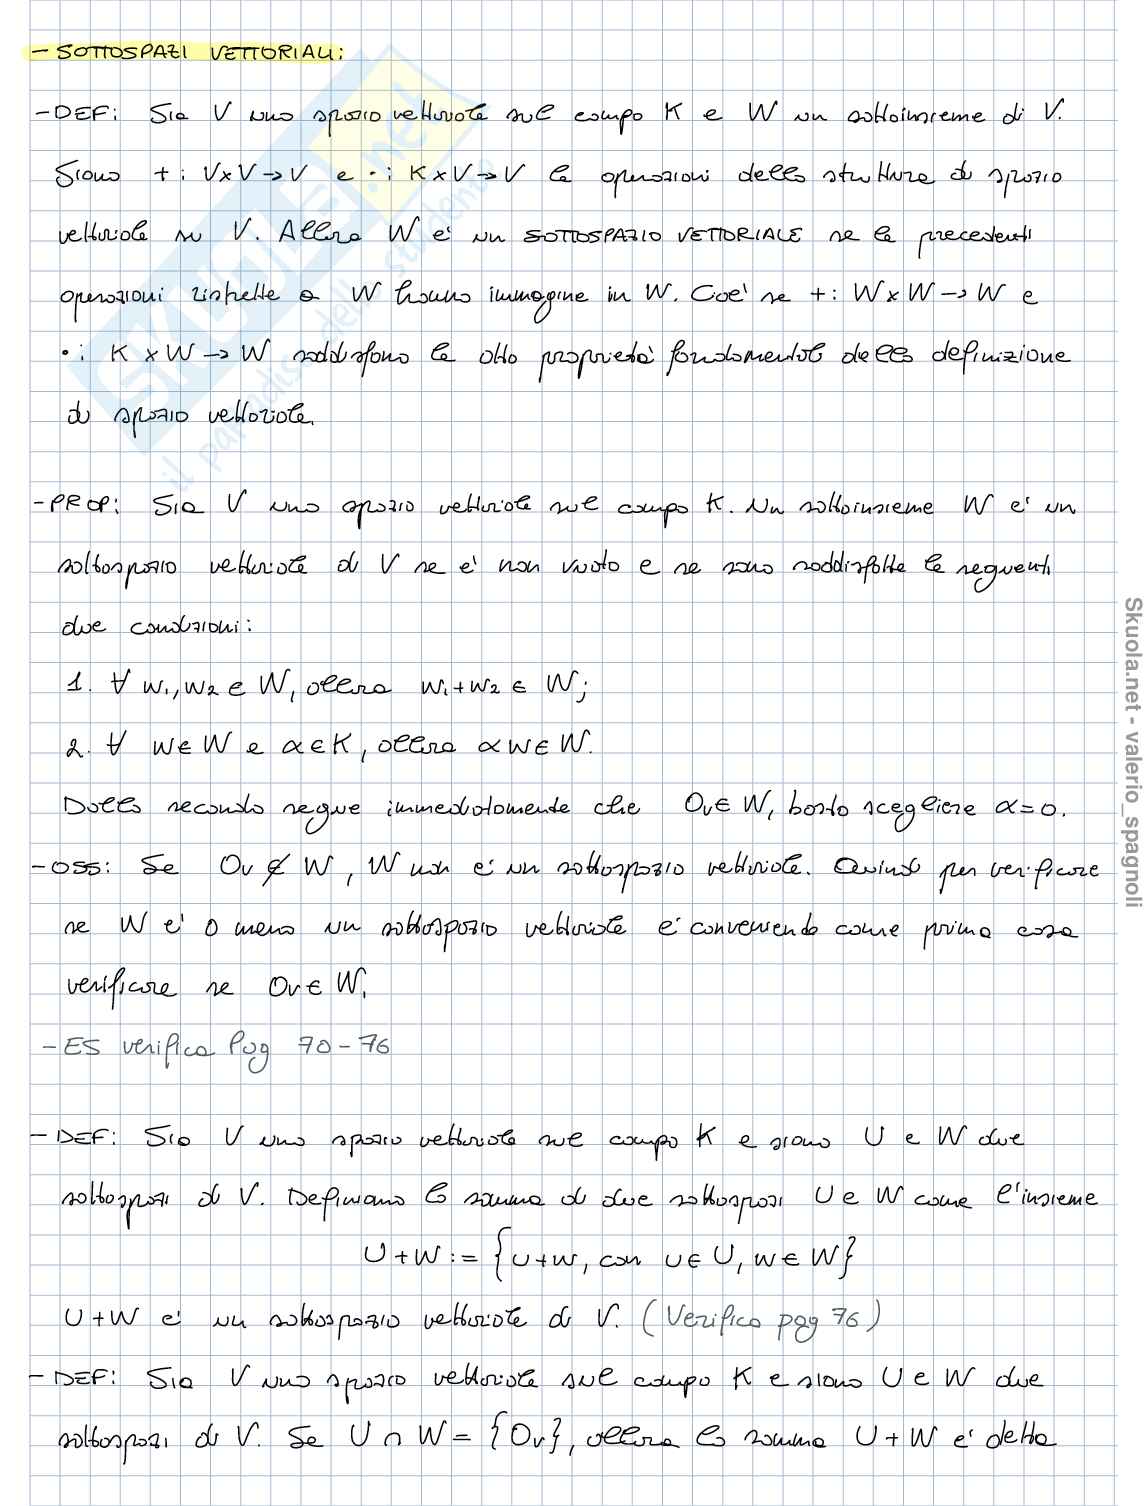 - SOTTOSPAZI VETTORIALI:
- DEF: Sia V uno spazio vettoriale sul campo K e W un sottoinsieme di V.
Siano + : V×V → V e • : K×V → V le operazioni della struttura di spazio
vettoriale su V. Allora W e' un SOTTOSPAZIO VETTORIALE se le precedenti
operazioni ristrette a W hanno immagine in W. Cioe' se +: W×W → W e
• : K × W → W soddisfano le otto proprieta' fondamentali della definizione
di spazio vettoriale.
- PROP: Sia V uno spazio vettoriale sul campo K. Un sottoinsieme W e' un
sottospazio vettoriale di V se e' non vuoto e se sono soddisfatte le seguenti
due condizioni:
1. ∀ w₁, w₂ ∈ W, allora w₁+w₂ ∈ W;
2. ∀ w ∈ W e α ∈ K, allora αw ∈ W.
Dalla seconda segue immediatamente che 0v ∈ W, basta scegliere α=0.
- OSS: Se 0v ∉ W, W non e' un sottospazio vettoriale. Quindi per verificare
se W e' o meno un sottospazio vettoriale e' conveniendo come prima cosa
verificare se 0v ∈ W.
- ES verifica Pag 70-76
- DEF: Sia V uno spazio vettoriale sul campo K e siano U e W due
sottospazi di V. Definiamo la somma di due sottospazi U e W come l'insieme
U+W := {u+w, con u ∈ U, w ∈ W}
U+W e' un sottospazio vettoriale di V. (Verifica pag 76)
- DEF: Sia V uno spazio vettoriale sul campo K e siano U e W due
sottospazi di V. Se U ∩ W = {0v}, allora la somma U+W e' detta
Skuola.net - valerio_spagnoli
skuola.net
il paradiso dello studente